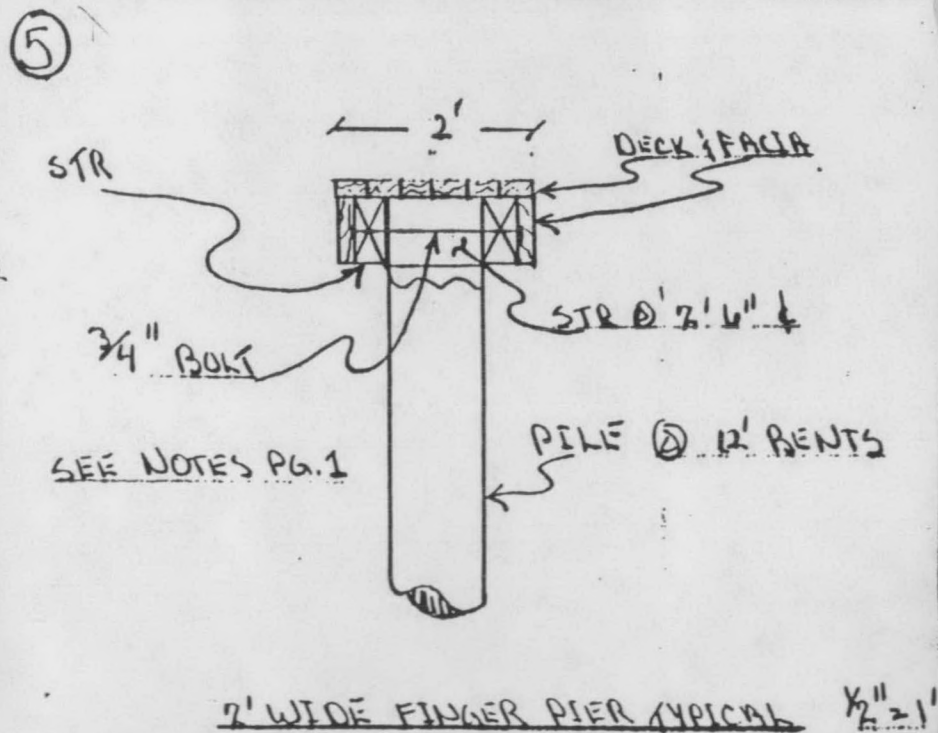 5
2'
STR
DECK & FACIA
3/4" BOLT
STR @ 2' 6"
SEE NOTES PG.1
PILE @ 12' BENTS
2' WIDE FINGER PIER TYPICAL 1/2" = 1'